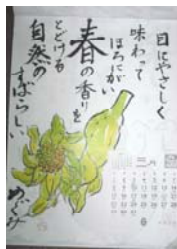 目にやさしく
味わって
ほろにがい
春の香りを
とどける
自然の
すばらしい
めぐみ
二月